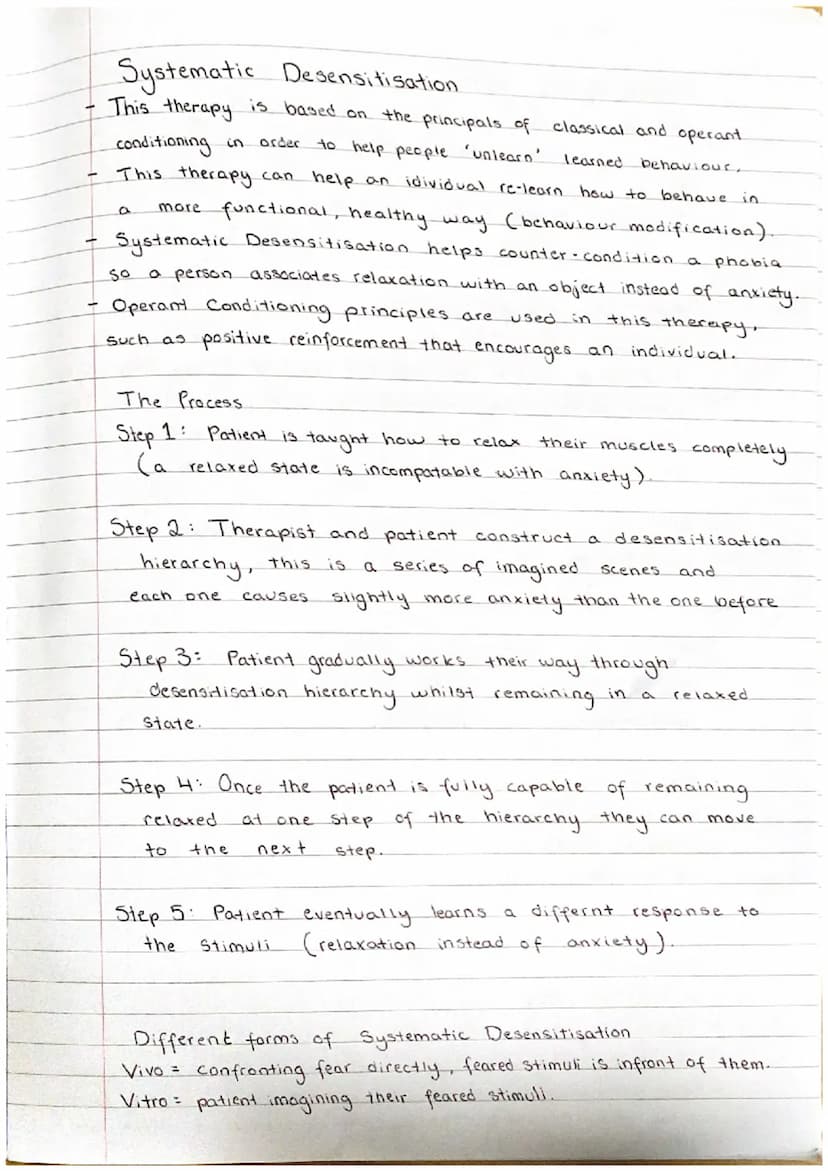 Systematic Desensitisation
- This therapy is based on the principals of classical and operant
conditioning in order to help people 'unlearn' learned behaviour.
- This therapy can help an idividual re-learn how to behave in
a more functional, healthy way (behaviour modification).
- Systematic Desensitisation helps counter-condition a phobia
so a person associates relaxation with an object instead of anxiety.
- Operant Conditioning principles are used in this therapy,
such as positive reinforcement that encourages an individual.
The Process
Step 1: Patient is taught how to relax their muscles completely
(a relaxed state is incompatable with anxiety).
Step 2: Therapist and patient construct a desensitisation
hierarchy, this is a series of imagined scenes and
each one causes slightly more anxiety than the one before
Step 3: Patient gradually works their way through
desensitisation hierarchy whilst remaining in a relaxed
state.
Step 4: Once the patient is fully capable of remaining
relaxed at one step of the hierarchy they can move
to the next step.
Step 5: Patient eventually learns a differnt response to
the stimuli (relaxation instead of anxiety).
Different forms of Systematic Desensitisation
Vivo = confronting fear directly, feared stimuli is infront of them.
Vitro = patient imagining their feared stimuli.